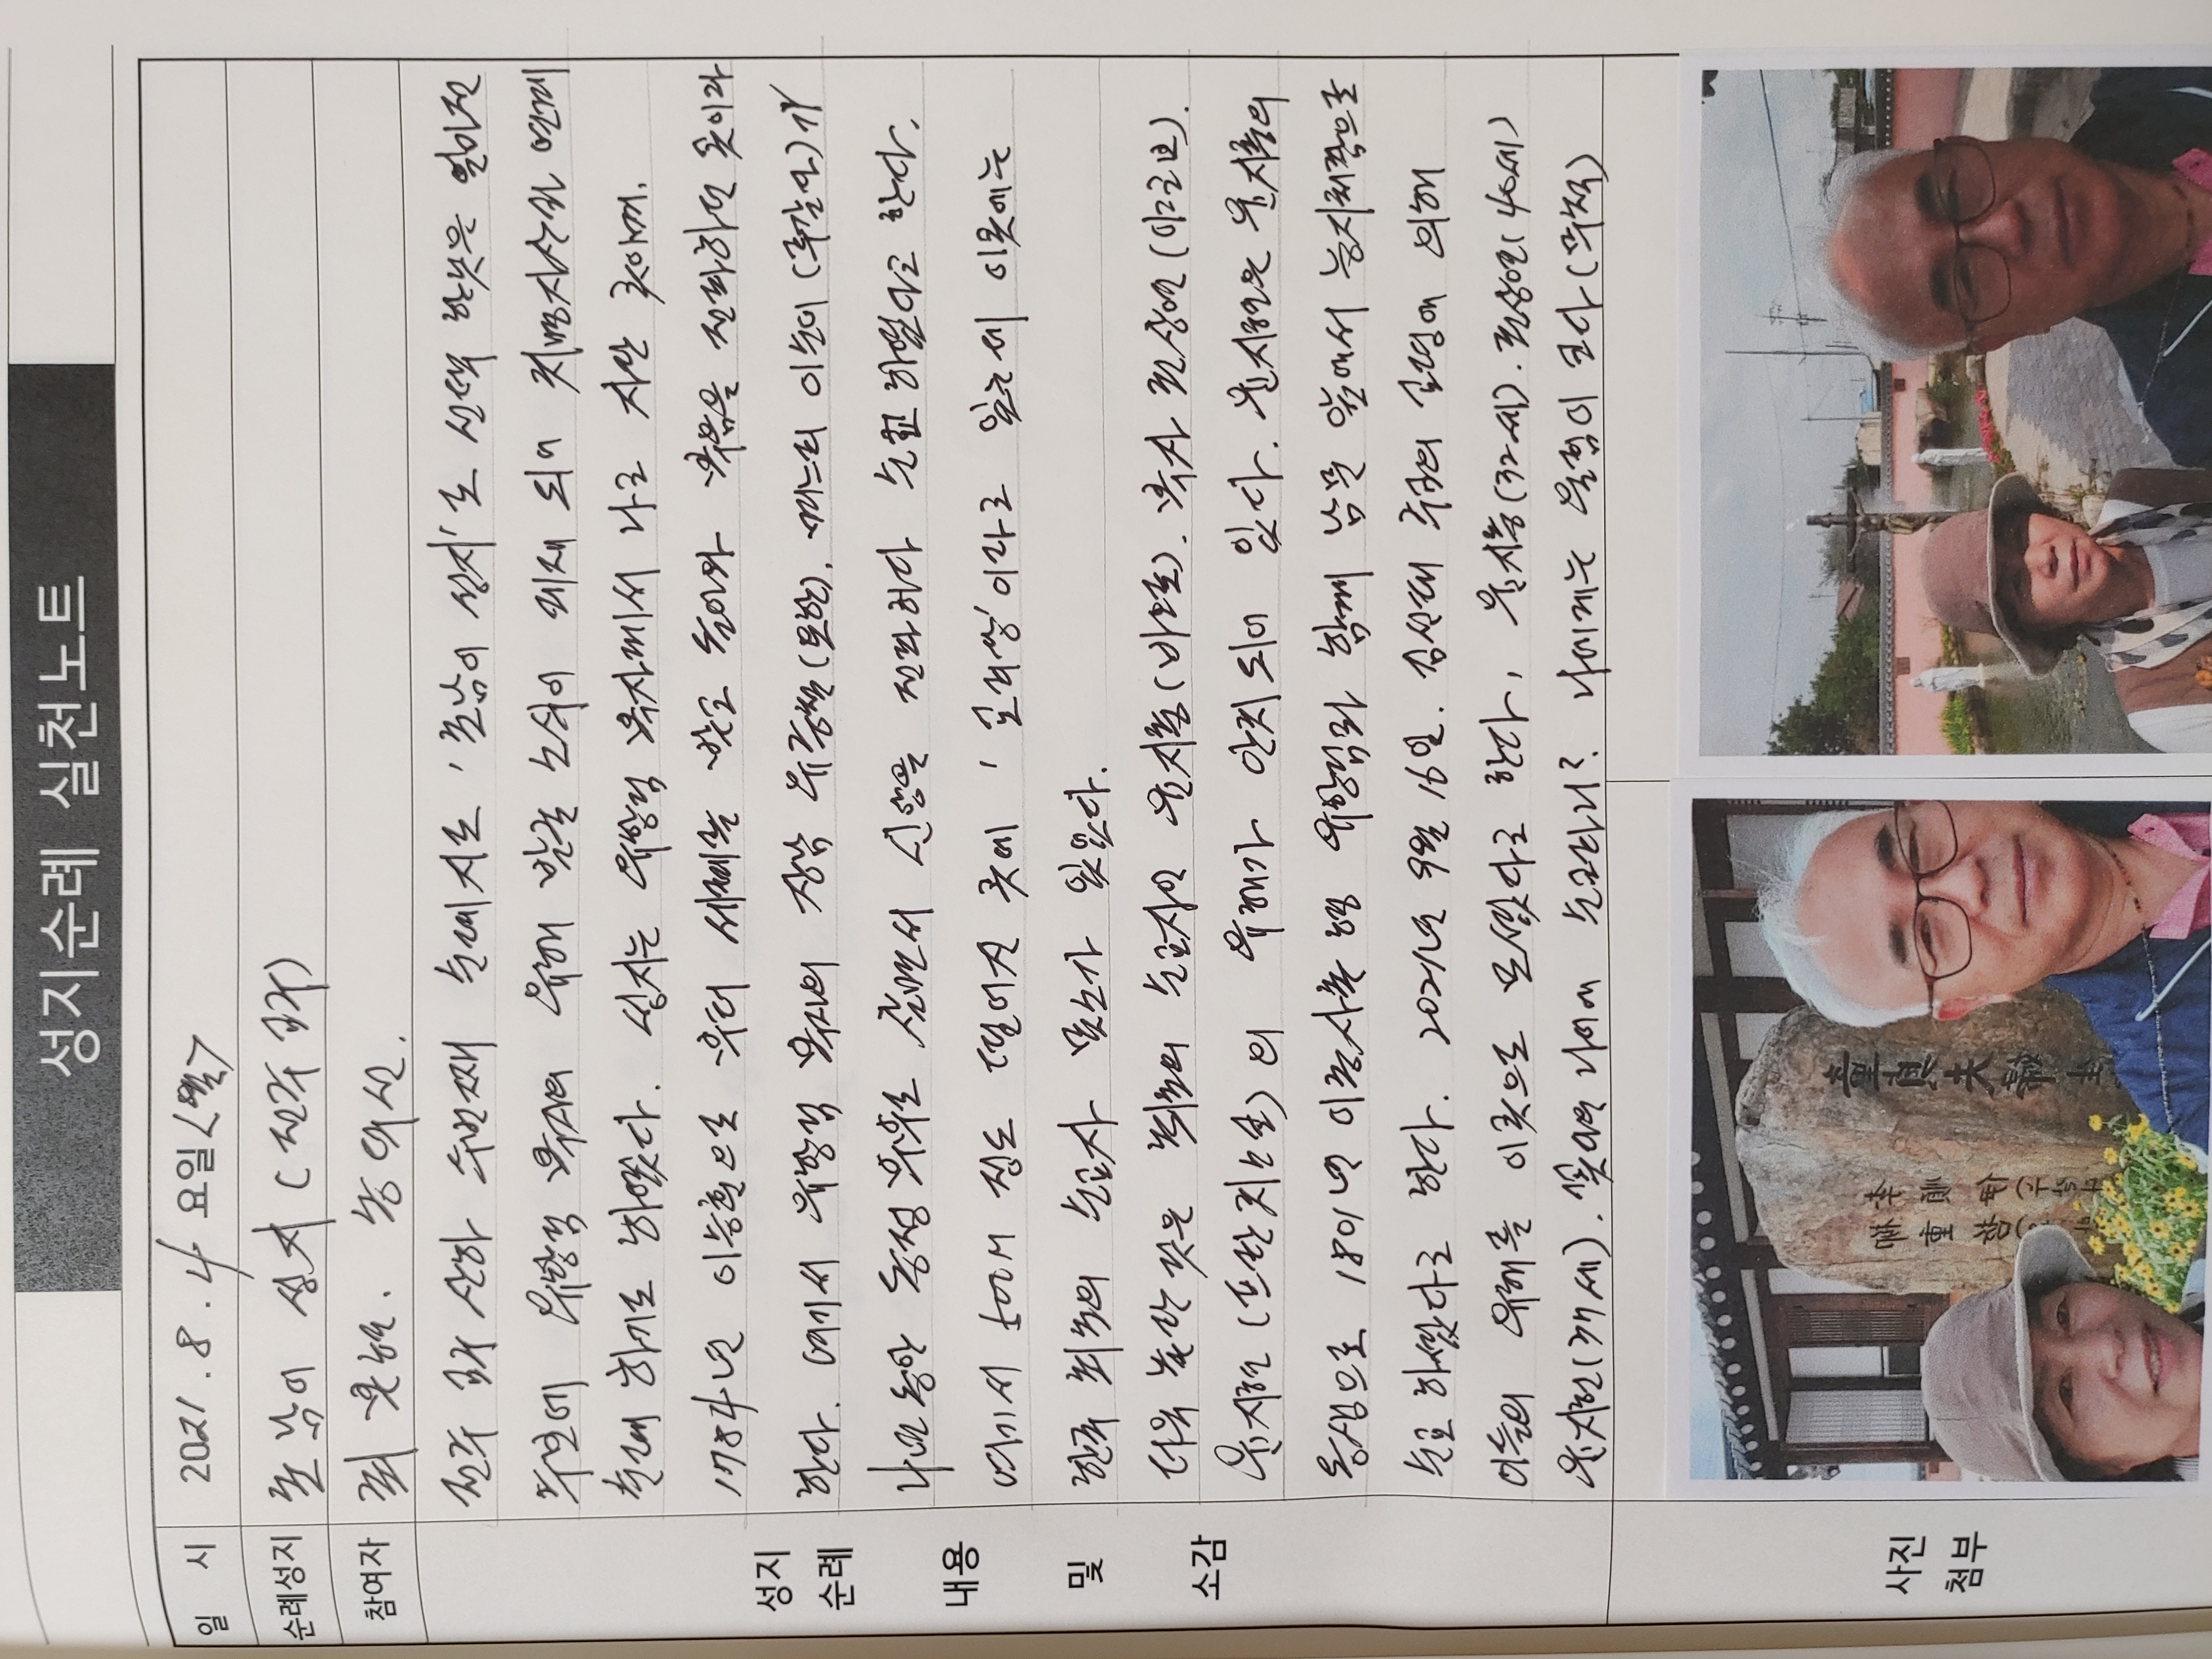 성지순례 실천노트
일 시 2021. 8. 4 요일
순례성지 초남이 성지 (전주 교구)
참여자 최
전주 교구 산하 두번째 순례지로 '초남이 성지'로 선택 한것은 얼마전
주보에 유항검 복자의 유해 발굴 소식이 게재 되어 치명자산과 연계
순례 하기로 하였다. 성지는 유항검 복자께서 나고 자란 곳이며,
1784년 이승훈으로 부터 세례를 받고 돌아와 복음을 전파하던 곳이라
한다. 여기서 유항검 복자의 장남 유중철(요한). 며느리 이순이 (루갈다)가
4년동안 동정 부부로 살면서 신앙을 전파하다 순교 하였다고 한다.
여기서 500M 정도 떨어진 곳에 ' 이라고 있는데 이곳에는
한국 최초의 순교자 묘소가 있었다.
더욱 놀란 것은 최초의 순교자인 윤지충(바오로). 복자 권상연(야고보).
윤지헌 (프란치스코) 의 유해가 안치 되어 있다. 윤지헌은 윤지충의
동생으로 1801년 유항검과 함께 남문 앞에서 능지처참으로
순교 하셨다고 한다. 2021년 9월 16일. 김선태 주교의 교령에 의해
이들의 유해를 이곳으로 모셨다고 한다, 윤지충(32세). 권상연(40세)
윤지헌(37세). 꽃다운 나이에 순교라니? 나에게는 울림이 크다
성지
순례
내용
및
소감
사진
첨부
童貞夫婦
李順伊
柳重哲